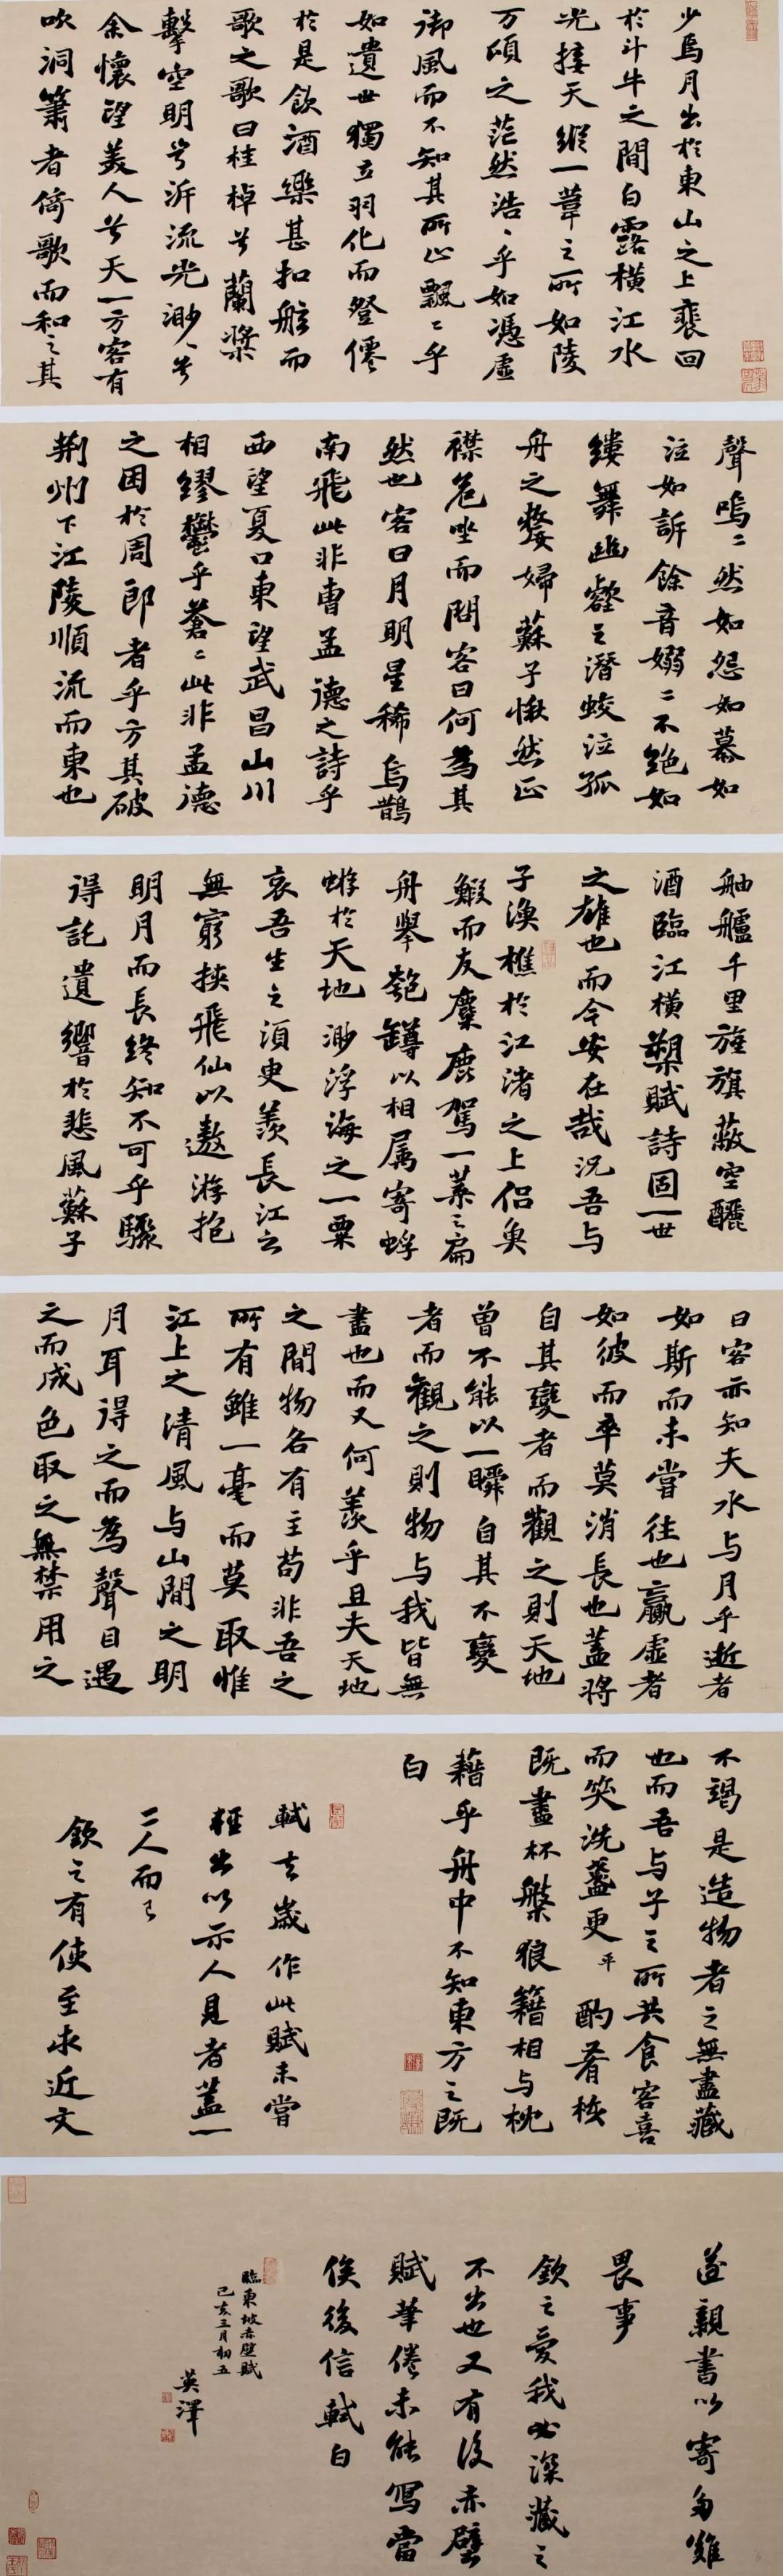 少焉月出於東山之上裵回
於斗牛之間白露橫江水
光接天縱一葦之所如陵
万頃之茫然浩〻乎如馮虛
御風而不知其所止飄〻乎
如遺世獨立羽化而登僊
於是飲酒樂甚扣舷而
歌之歌曰桂棹兮蘭槳
擊空明兮泝流光渺〻兮
余懷望美人兮天一方客有
吹洞簫者倚歌而和之其
聲嗚〻然如怨如慕如
泣如訴餘音嫋〻不絕如
縷舞幽壑之潛蛟泣孤
舟之嫠婦蘇子愀然正
襟危坐而問客曰何為其
然也客曰月明星稀烏鵲
南飛此非曹孟德之詩乎
西望夏口東望武昌山川
相繆鬱乎蒼〻此非孟德
之困於周郎者乎方其破
荆州下江陵順流而東也
舳艫千里旌旗蔽空釃
酒臨江橫槊賦詩固一世
之雄也而今安在哉況吾与
子漁樵於江渚之上侶魚
鰕而友麋鹿駕一葉之扁
舟舉匏罇以相属寄蜉
蝣於天地渺浮海之一粟
哀吾生之須臾羨長江之
無窮挾飛仙以遨游抱
明月而長終知不可乎驟
得託遺響於悲風蘇子
曰客亦知夫水与月乎逝者
如斯而未嘗往也贏虛者
如彼而卒莫消長也蓋將
自其變者而觀之則天地
曾不能以一瞬自其不變
者而觀之則物与我皆無
盡也而又何羨乎且夫天地
之間物各有主苟非吾之
所有雖一毫而莫取惟
江上之清風与山間之明
月耳得之而為聲目遇
之而成色取之無禁用之
不竭是造物者之無盡藏
也而吾与子之所共食客喜
而笑洗盞更平酌肴核
既盡杯槃狼籍相与枕
藉乎舟中不知東方之既
白
軾去歲作此賦未嘗
輕出以示人見者蓋一
二人而已
欽之有使至求近文
遂親書以寄多難
畏事
欽之愛我必深藏之
不出也又有後赤壁
賦筆倦未能寫當
俟後信軾白
臨東坡赤壁賦
己亥三月初五
英澤